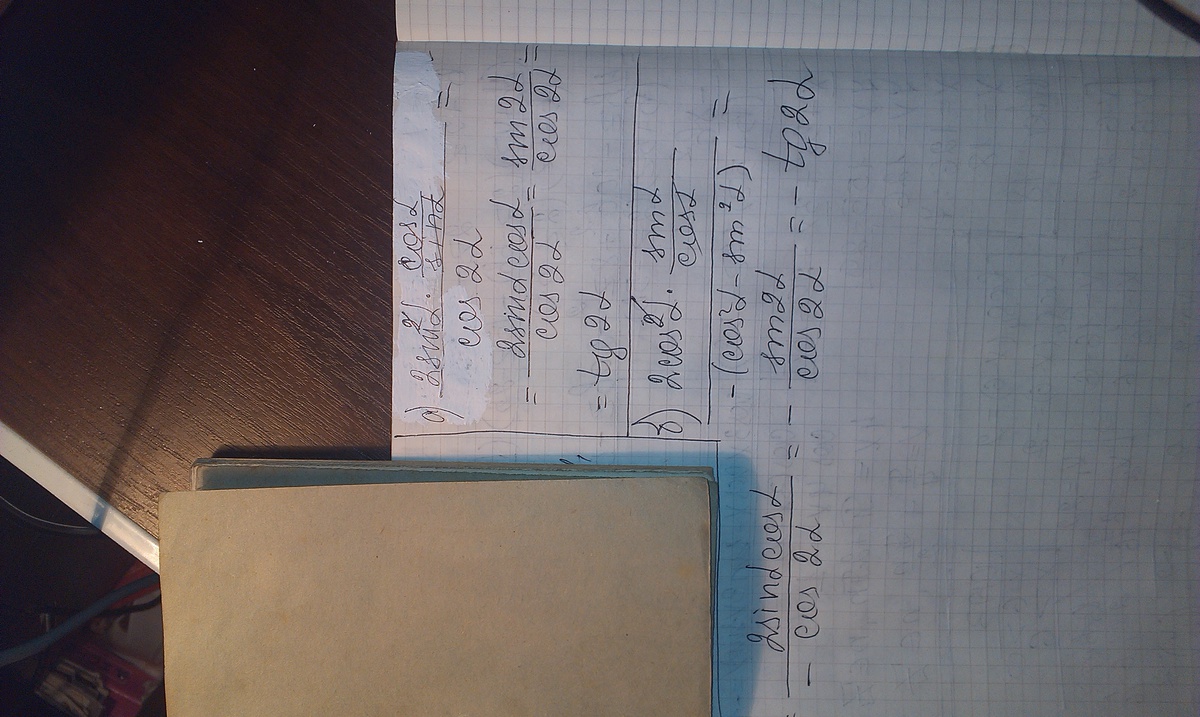 а) (2sin²α · cosα/sinα)/(cos2α) =
= (2sinαcosα)/(cos2α) = (sin2α)/(cos2α) =
= tg2α
б) (2cos²α · sinα/cosα)/(-(cos²α - sin²α)) =
= - (2sinαcosα)/(cos2α) = - (sin2α)/(cos2α) = - tg2α